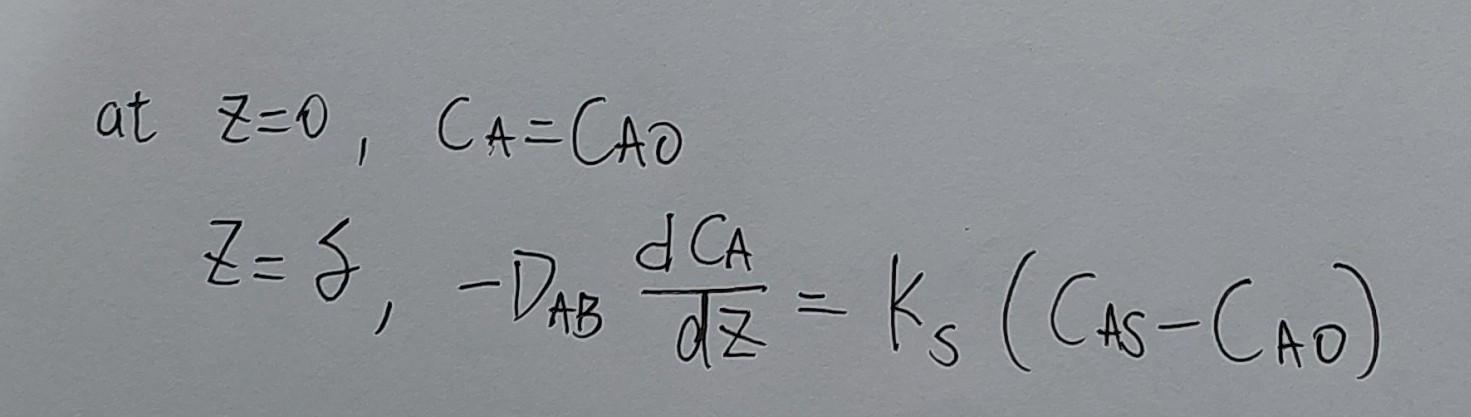 at z=0, CA=CAO
z=δ, -DAB dCA/dz = Ks (CAS-CAO)